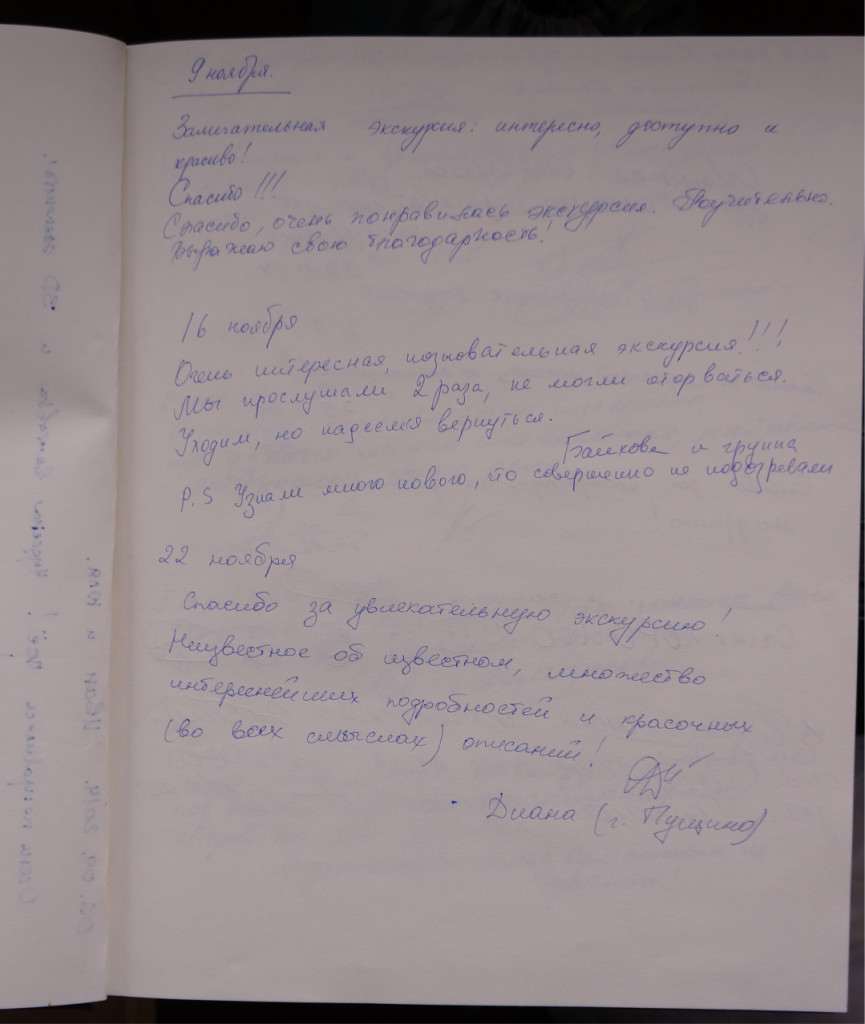 9 ноября.
Замечательная экскурсия: интересно, доступно и
красиво!
Спасибо!!!
Спасибо, очень понравилась экскурсия. Поучительно.
Выражаю свою благодарность!
16 ноября
Очень интересная, познавательная экскурсия!!!
Мы прослушали 2 раза, не могли оторваться.
Уходим, но надеемся вернуться.
Байкова и группа
P.S Узнали много нового, что совершенно не подозревали
22 ноября
Спасибо за увлекательную экскурсию!
Неизвестное об известном, множество
интереснейших подробностей и красочных
(во всех смыслах) описаний!
Диана (г. Пущино)
06. 09. 2014. Иван и Юля.